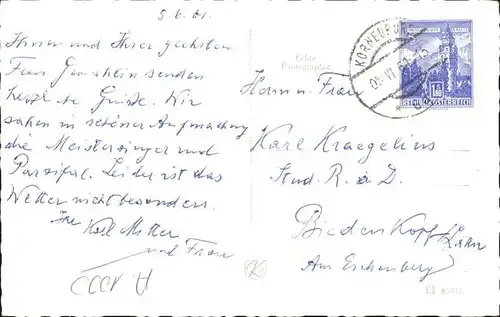 5.6.61.
Ihnen und Ihrer geehrten
Frau Gemahlin senden
herzliche Grüße. Wir
sahen in schöner Aufmachung
die Meistersinger und
Parsifal. Leider ist das
Wetter nicht besonders.
Ihr Karl
und Frau
Echte
Photographie
KORNEUBURG
05.VI.61
1.80
REPUBLIK ÖSTERREICH
Herrn u. Frau
Karl Kraegelius
Stud. R. a D.
Biedenkopf Lahn
Am Eschenberg
A 1000